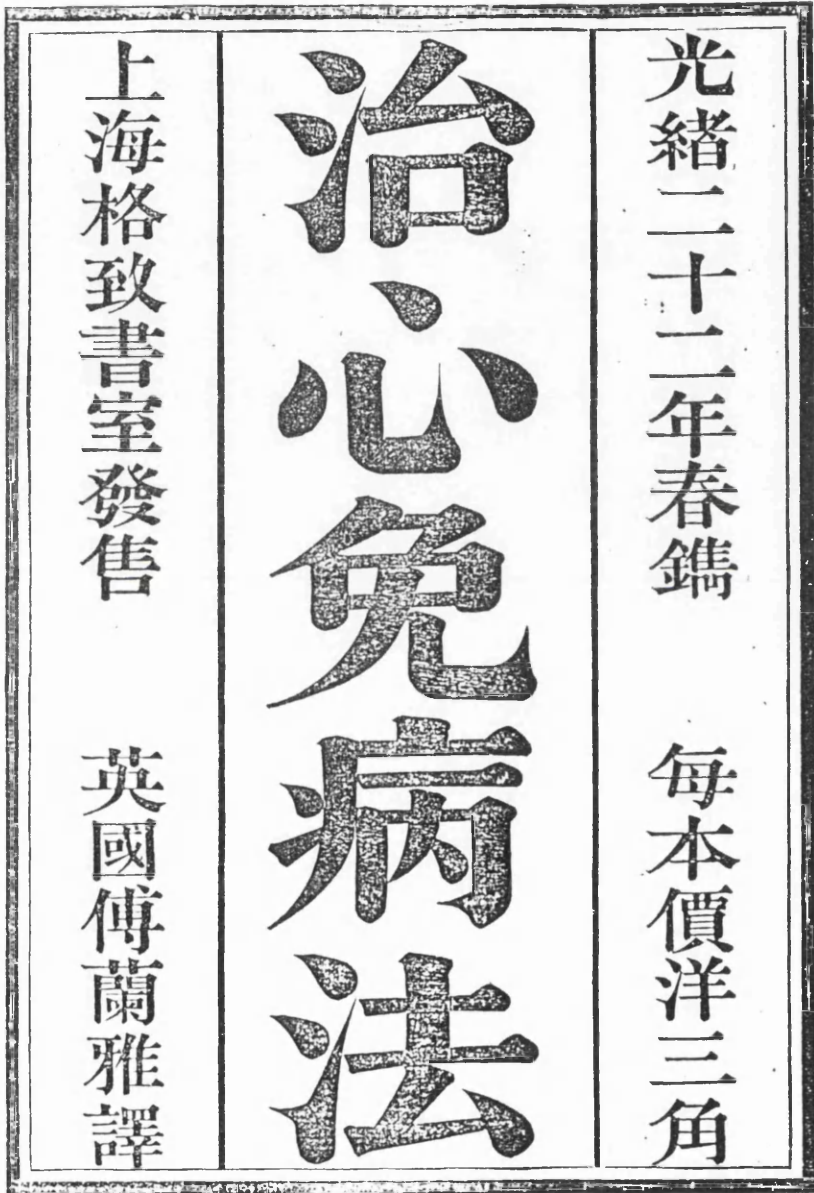 光緒二十二年春鐫　每本價洋三角
治心免病法
上海格致書室發售　英國傅蘭雅譯